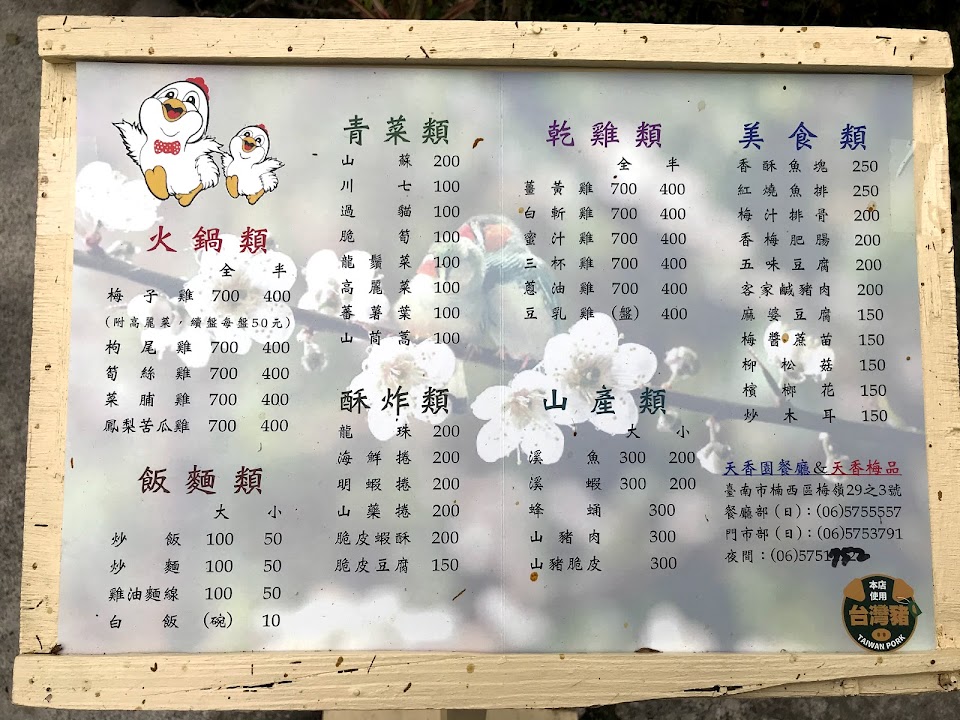 火鍋類
全 半
梅子雞 700 400
(附高麗菜,續盤每盤50元)
枸尾雞 700 400
筍絲雞 700 400
菜脯雞 700 400
鳳梨苦瓜雞 700 400
飯麵類
大 小
炒飯 100 50
炒麵 100 50
雞油麵線 100 50
白飯 (碗) 10
青菜類
山蘇 200
川七 100
過貓 100
脆筍 100
龍鬚菜 100
高麗菜 100
蕃薯葉 100
山茼蒿 100
酥炸類
龍珠 200
海鮮捲 200
明蝦捲 200
山藥捲 200
脆皮蝦酥 200
脆皮豆腐 150
乾雞類
全 半
薑黃雞 700 400
白斬雞 700 400
蜜汁雞 700 400
三杯雞 700 400
蔥油雞 700 400
豆乳雞 (盤) 400
山產類
大 小
溪魚 300 200
溪蝦 300 200
蜂蛹 300
山豬肉 300
山豬脆皮 300
美食類
香酥魚塊 250
紅燒魚排 250
梅汁排骨 200
香梅肥腸 200
五味豆腐 200
客家鹹豬肉 200
麻婆豆腐 150
梅醬蔗苗 150
柳松菇 150
檳榔花 150
炒木耳 150
天香園餐廳&天香梅品
臺南市楠西區梅嶺29之3號
餐廳部(日):(06)5755557
門市部(日):(06)5753791
夜間:(06)5751
本店
使用
台灣豬
TAIWAN PORK